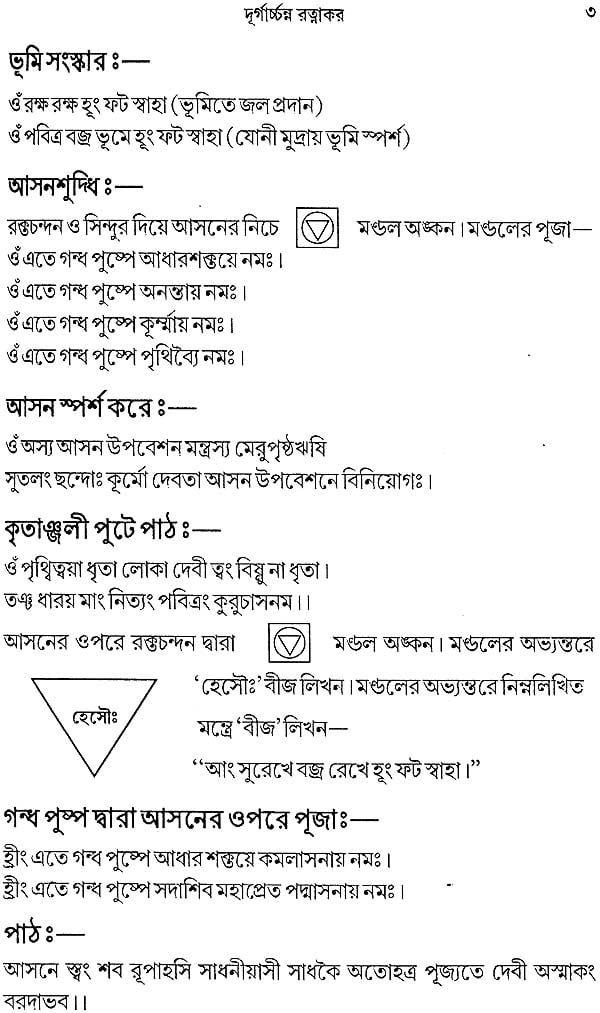 দূর্গার্চ্চন্ন রত্নাকর ৩
ভূমি সংস্কার ঃ—
ওঁ রক্ষ রক্ষ হূং ফট স্বাহা (ভূমিতে জল প্রদান)
ওঁ পবিত্র বজ্র ভূমে হূং ফট স্বাহা (যোনী মুদ্রায় ভূমি স্পর্শ)
আসনশুদ্ধি ঃ—
রক্তচন্দন ও সিন্দুর দিয়ে আসনের নিচে মণ্ডল অঙ্কন। মণ্ডলের পূজা—
ওঁ এতে গন্ধ পুষ্পে আধারশক্তয়ে নমঃ।
ওঁ এতে গন্ধ পুষ্পে অনন্তায় নমঃ।
ওঁ এতে গন্ধ পুষ্পে কূর্ম্মায় নমঃ।
ওঁ এতে গন্ধ পুষ্পে পৃথিব্যৈ নমঃ।
আসন স্পর্শ করে ঃ—
ওঁ অস্য আসন উপবেশন মন্ত্রস্য মেরুপৃষ্ঠঋষি
সুতলং ছন্দোঃ কূর্মো দেবতা আসন উপবেশনে বিনিয়োগঃ।
কৃতাঞ্জলী পুটে পাঠ ঃ—
ওঁ পৃথ্বিত্বয়া ধৃতা লোকা দেবী ত্বং বিষ্ণু না ধৃতা।
তঞ্চ ধারয় মাং নিত্যং পবিত্রং কুরুচাসনম।।
আসনের ওপরে রক্তচন্দন দ্বারা মণ্ডল অঙ্কন। মণ্ডলের অভ্যন্তরে
হেসৌঃ
‘হেসৌঃ’ বীজ লিখন। মণ্ডলের অভ্যন্তরে নিম্নলিখিত
মন্ত্রে ‘বীজ’ লিখন—
“আং সুরেখে বজ্র রেখে হূং ফট স্বাহা।”
গন্ধ পুষ্প দ্বারা আসনের ওপরে পূজা ঃ—
হ্রীং এতে গন্ধ পুষ্পে আধার শক্তয়ে কমলাসনায় নমঃ।
হ্রীং এতে গন্ধ পুষ্পে সদাশিব মহাপ্রেত পদ্মাসনায় নমঃ।
পাঠ ঃ—
আসনে স্ত্বং শব রূপাহসি সাধনীয়াসী সাধকৈ অতোহত্র পূজ্যতে দেবী অস্মাকং
বরদাভব।।